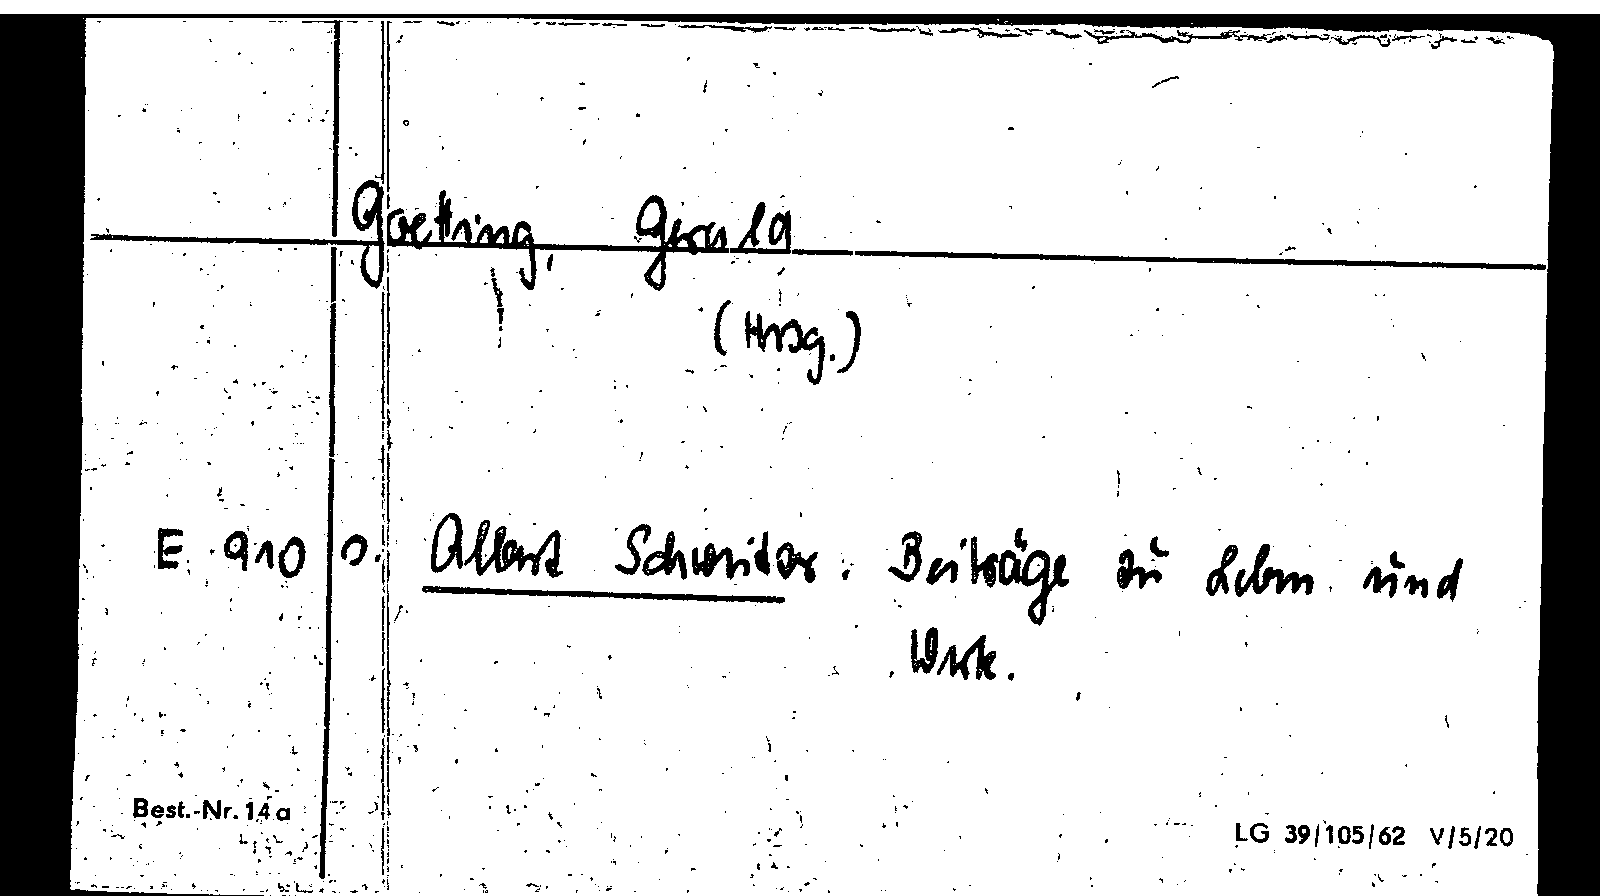 Goetting, Gerald
(Hrsg.)
E 910 s. Albert Schweitzer. Beiträge zu Leben und
Werk.
Best.-Nr. 14 a
LG 39/105/62 V/5/20